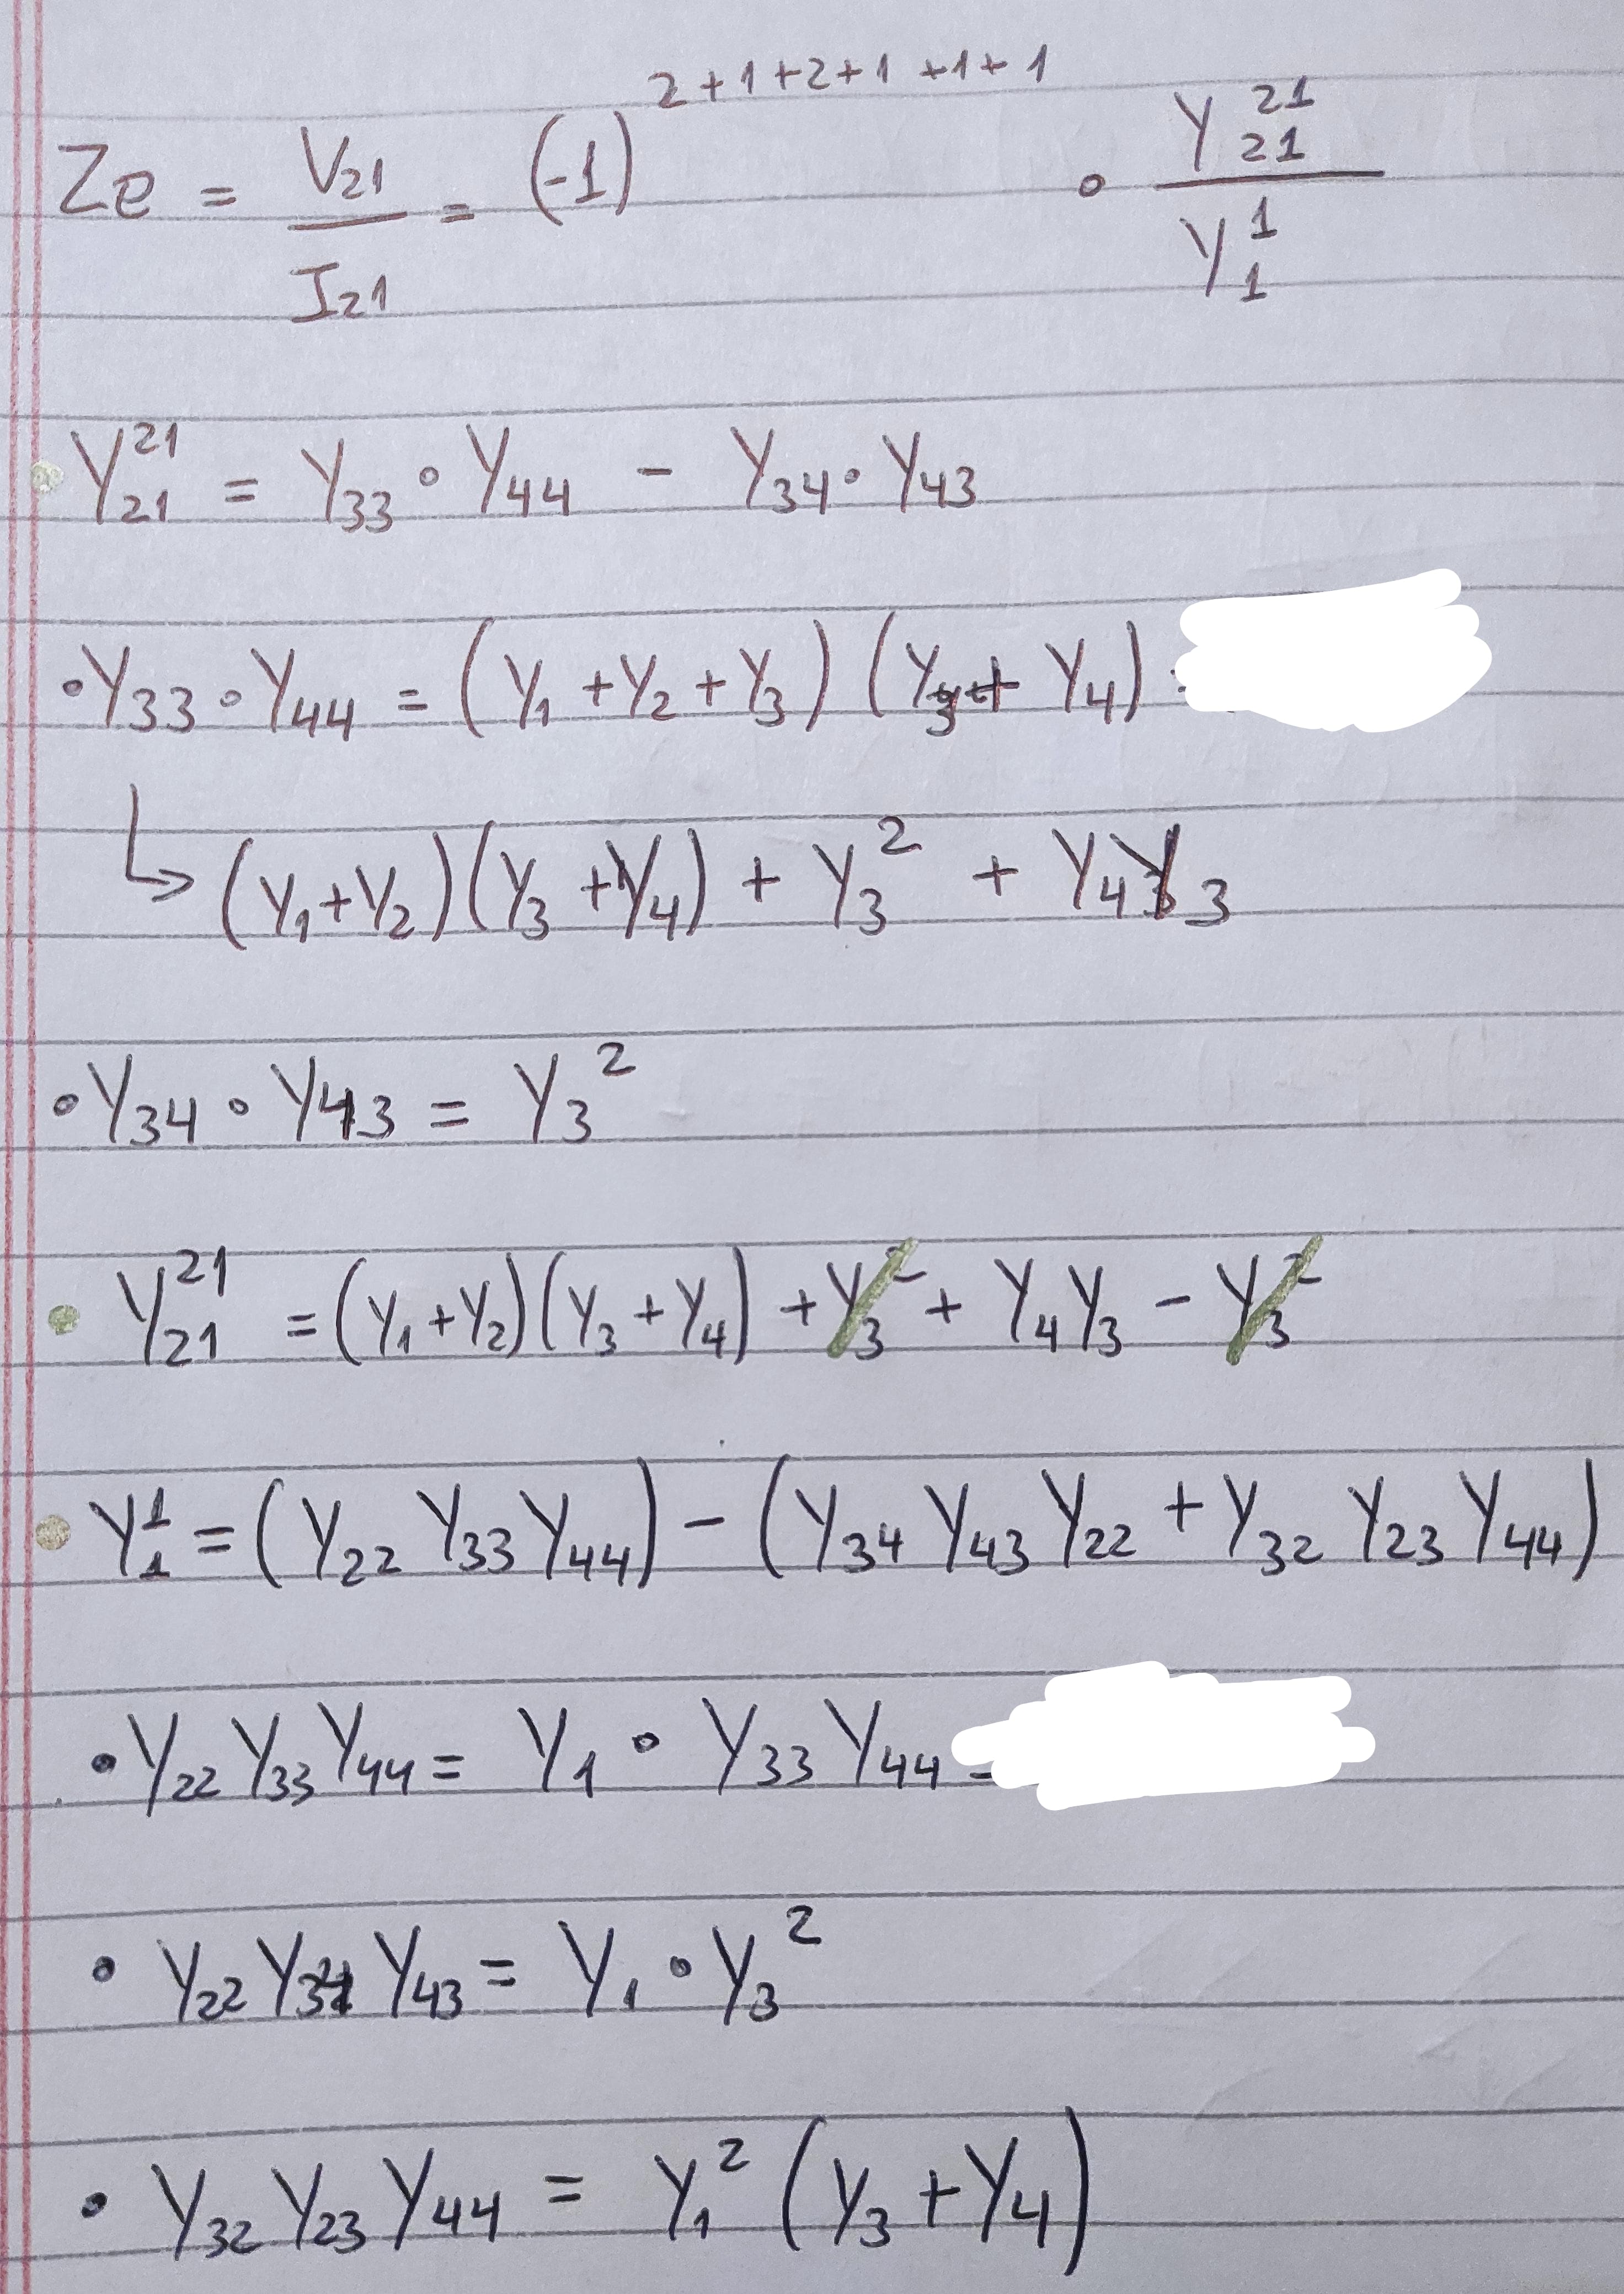 Ze = V₂₁ / I₂₁ = (-1)^(2+1+2+1+1+1) · Y²¹₂₁ / Y¹₁
• Y²¹₂₁ = Y₃₃ · Y₄₄ - Y₃₄ · Y₄₃
• Y₃₃ · Y₄₄ = (Y₁ + Y₂ + Y₃) (Y₃ + Y₄)
↳ (Y₁ + Y₂)(Y₃ + Y₄) + Y₃² + Y₄Y₃
• Y₃₄ · Y₄₃ = Y₃²
• Y²¹₂₁ = (Y₁ + Y₂)(Y₃ + Y₄) + Y₃² + Y₄Y₃ - Y₃²
• Y¹₁ = (Y₂₂ Y₃₃ Y₄₄) - (Y₃₄ Y₄₃ Y₂₂ + Y₃₂ Y₂₃ Y₄₄)
• Y₂₂ Y₃₃ Y₄₄ = Y₁ · Y₃₃ Y₄₄
• Y₂₂ Y₃₄ Y₄₃ = Y₁ · Y₃²
• Y₃₂ Y₂₃ Y₄₄ = Y₁² (Y₃ + Y₄)